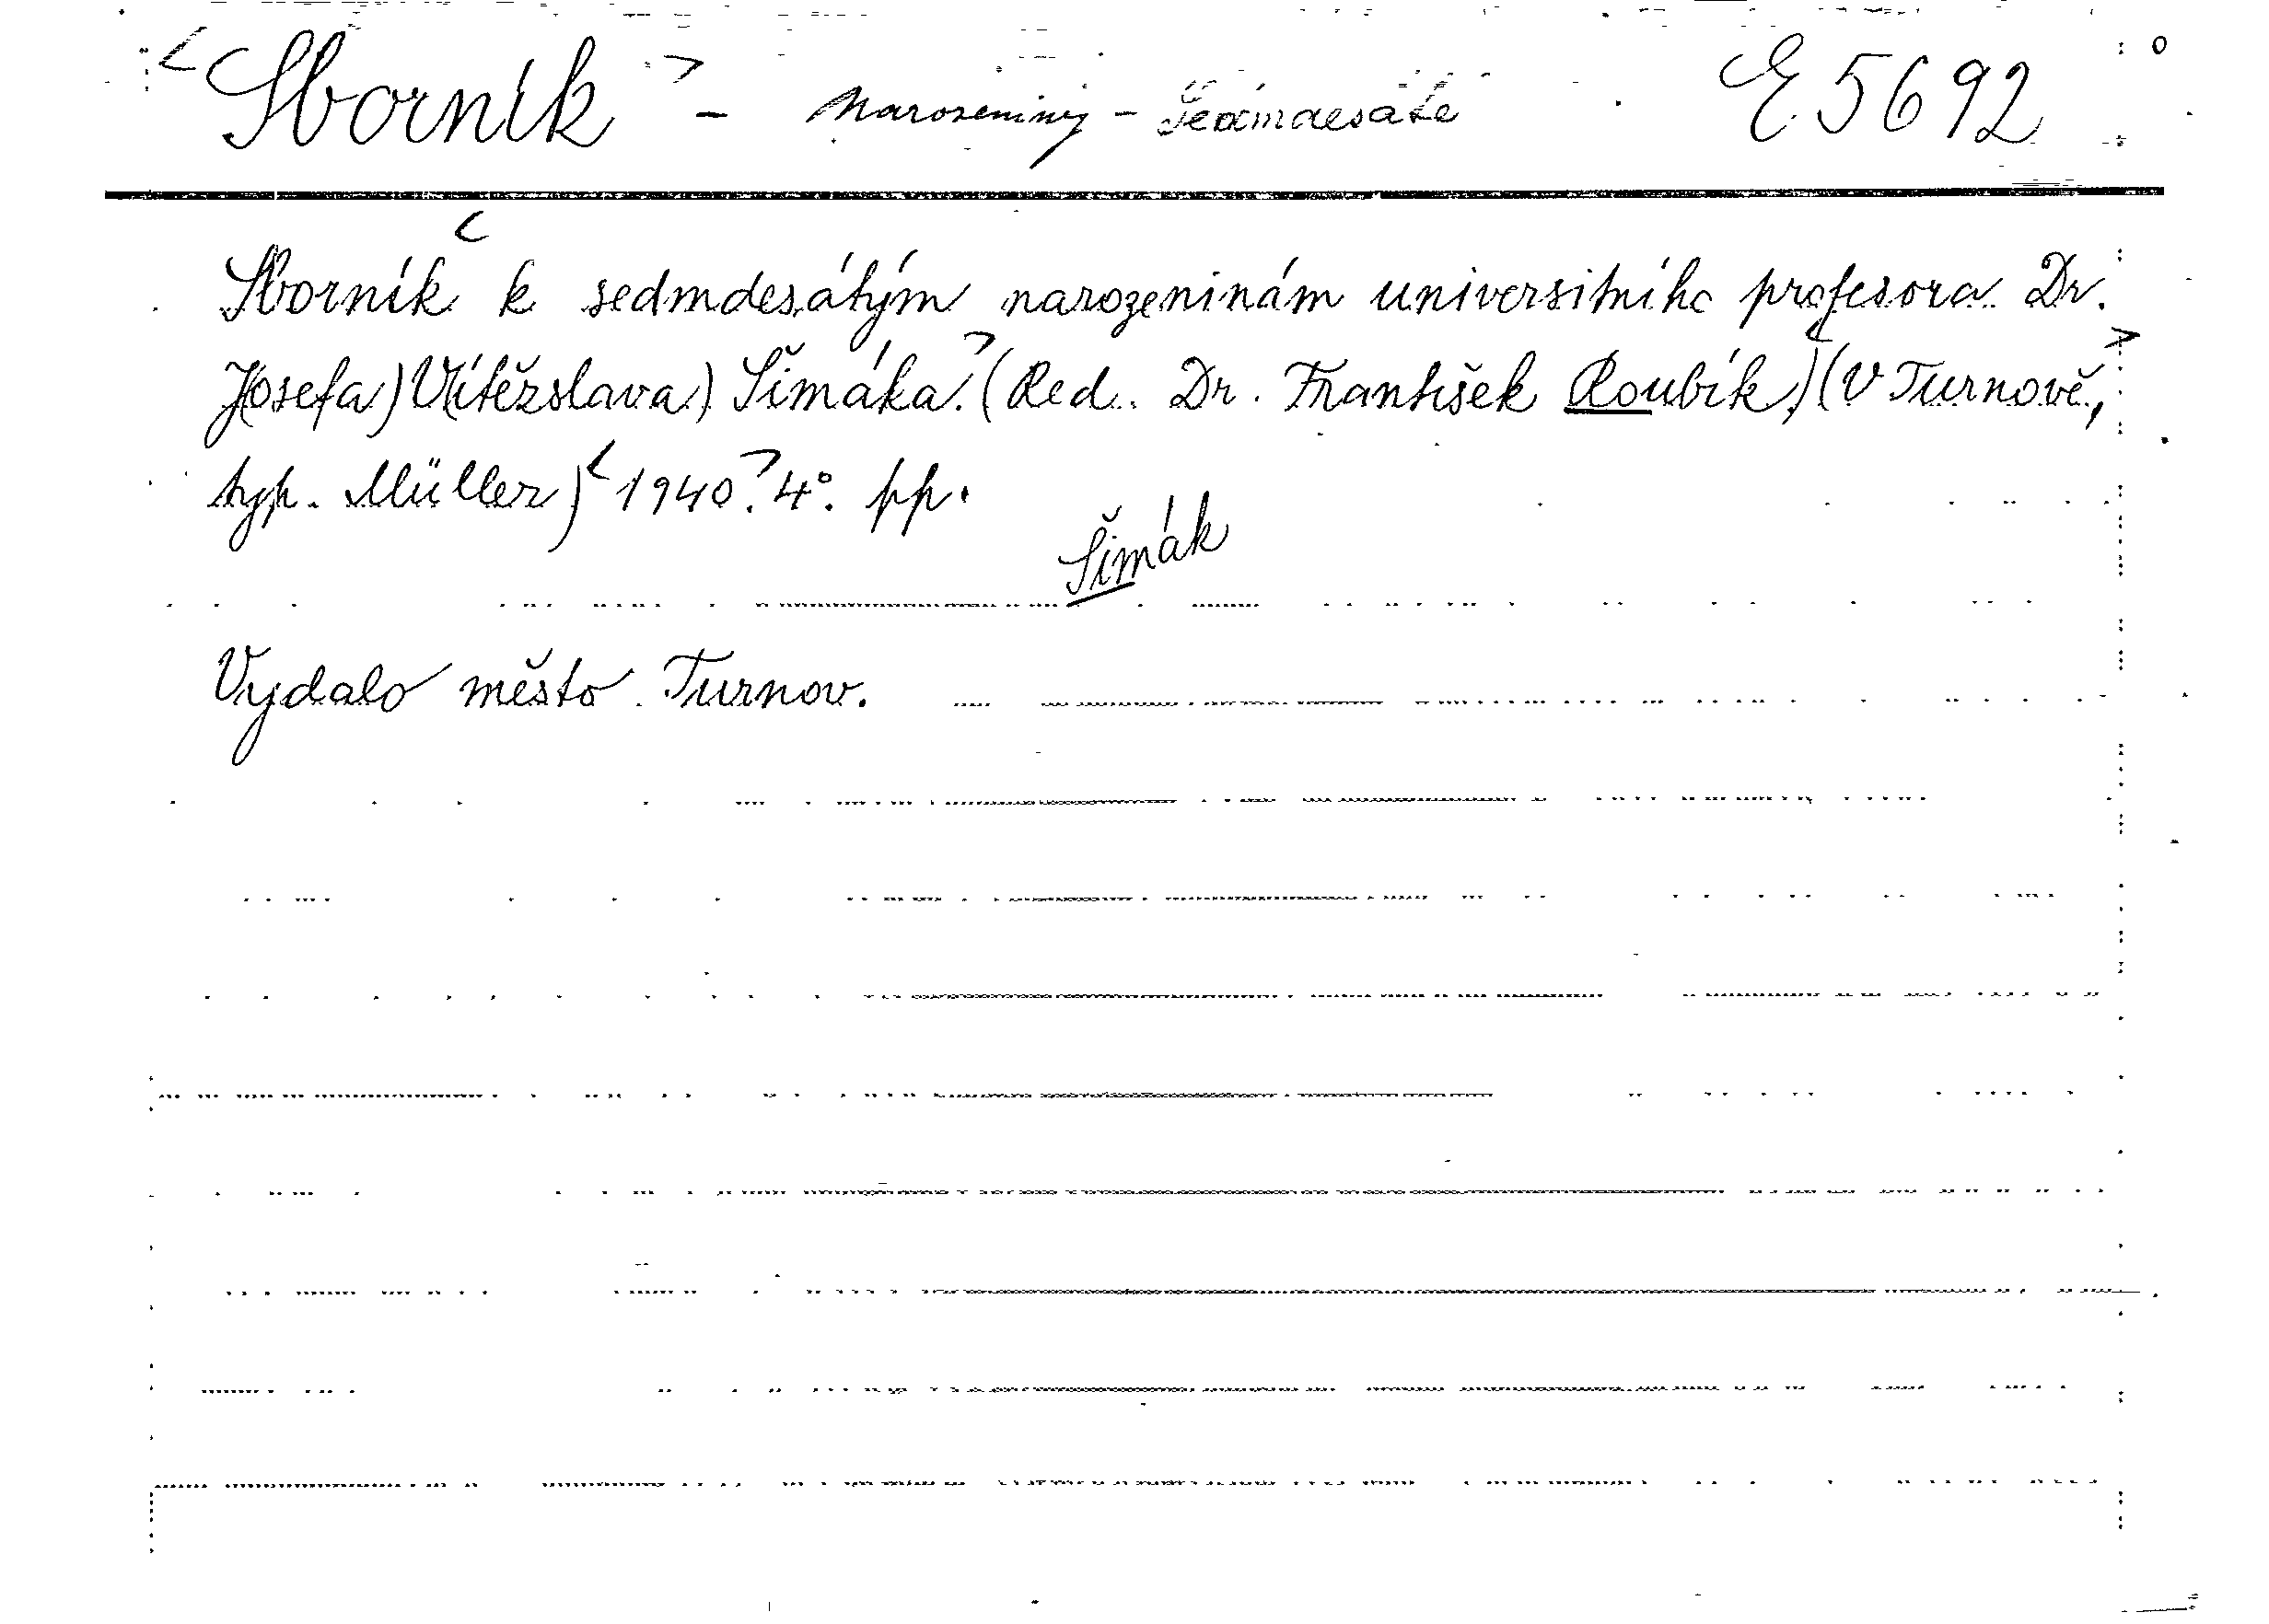 <Sborník> - Narozeniny - Sedmdesáté E 5692
<Sborník k sedmdesátým narozeninám universitního profesora Dr.
J(osefa) V(ítězslava) Šimáka.> (Red. Dr. František Roubík.) <(V Turnově,>
typ. Müller) <1940.> 4°. pp.
Šimák
Vydalo město Turnov.